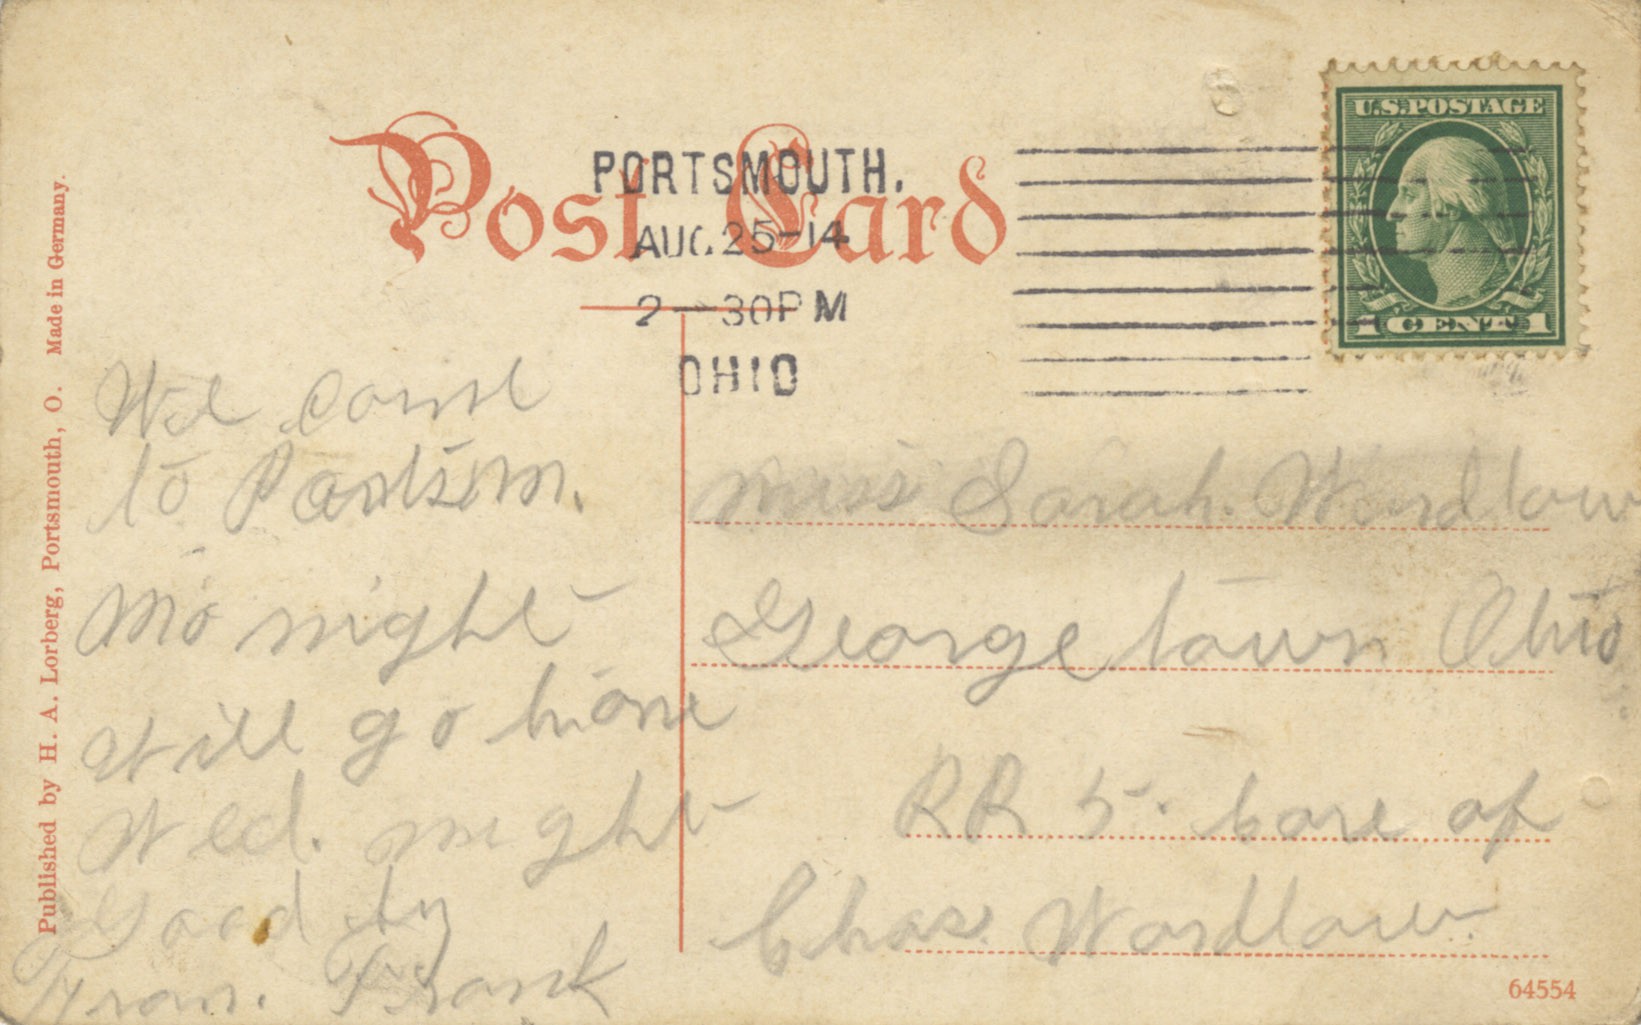 Post Card
PORTSMOUTH.
AUG. 25-14
2-30PM
OHIO
U.S. POSTAGE
1 CENT 1
Published by H. A. Lorberg, Portsmouth, O. Made in Germany.
We come
to Portsm.
Mo night
Will go home
Wed. night
Good by
From. Frank
Miss Sarah. Wardlow
Georgetown Ohio
RR 5. Care of
Chas. Wardlow.
64554